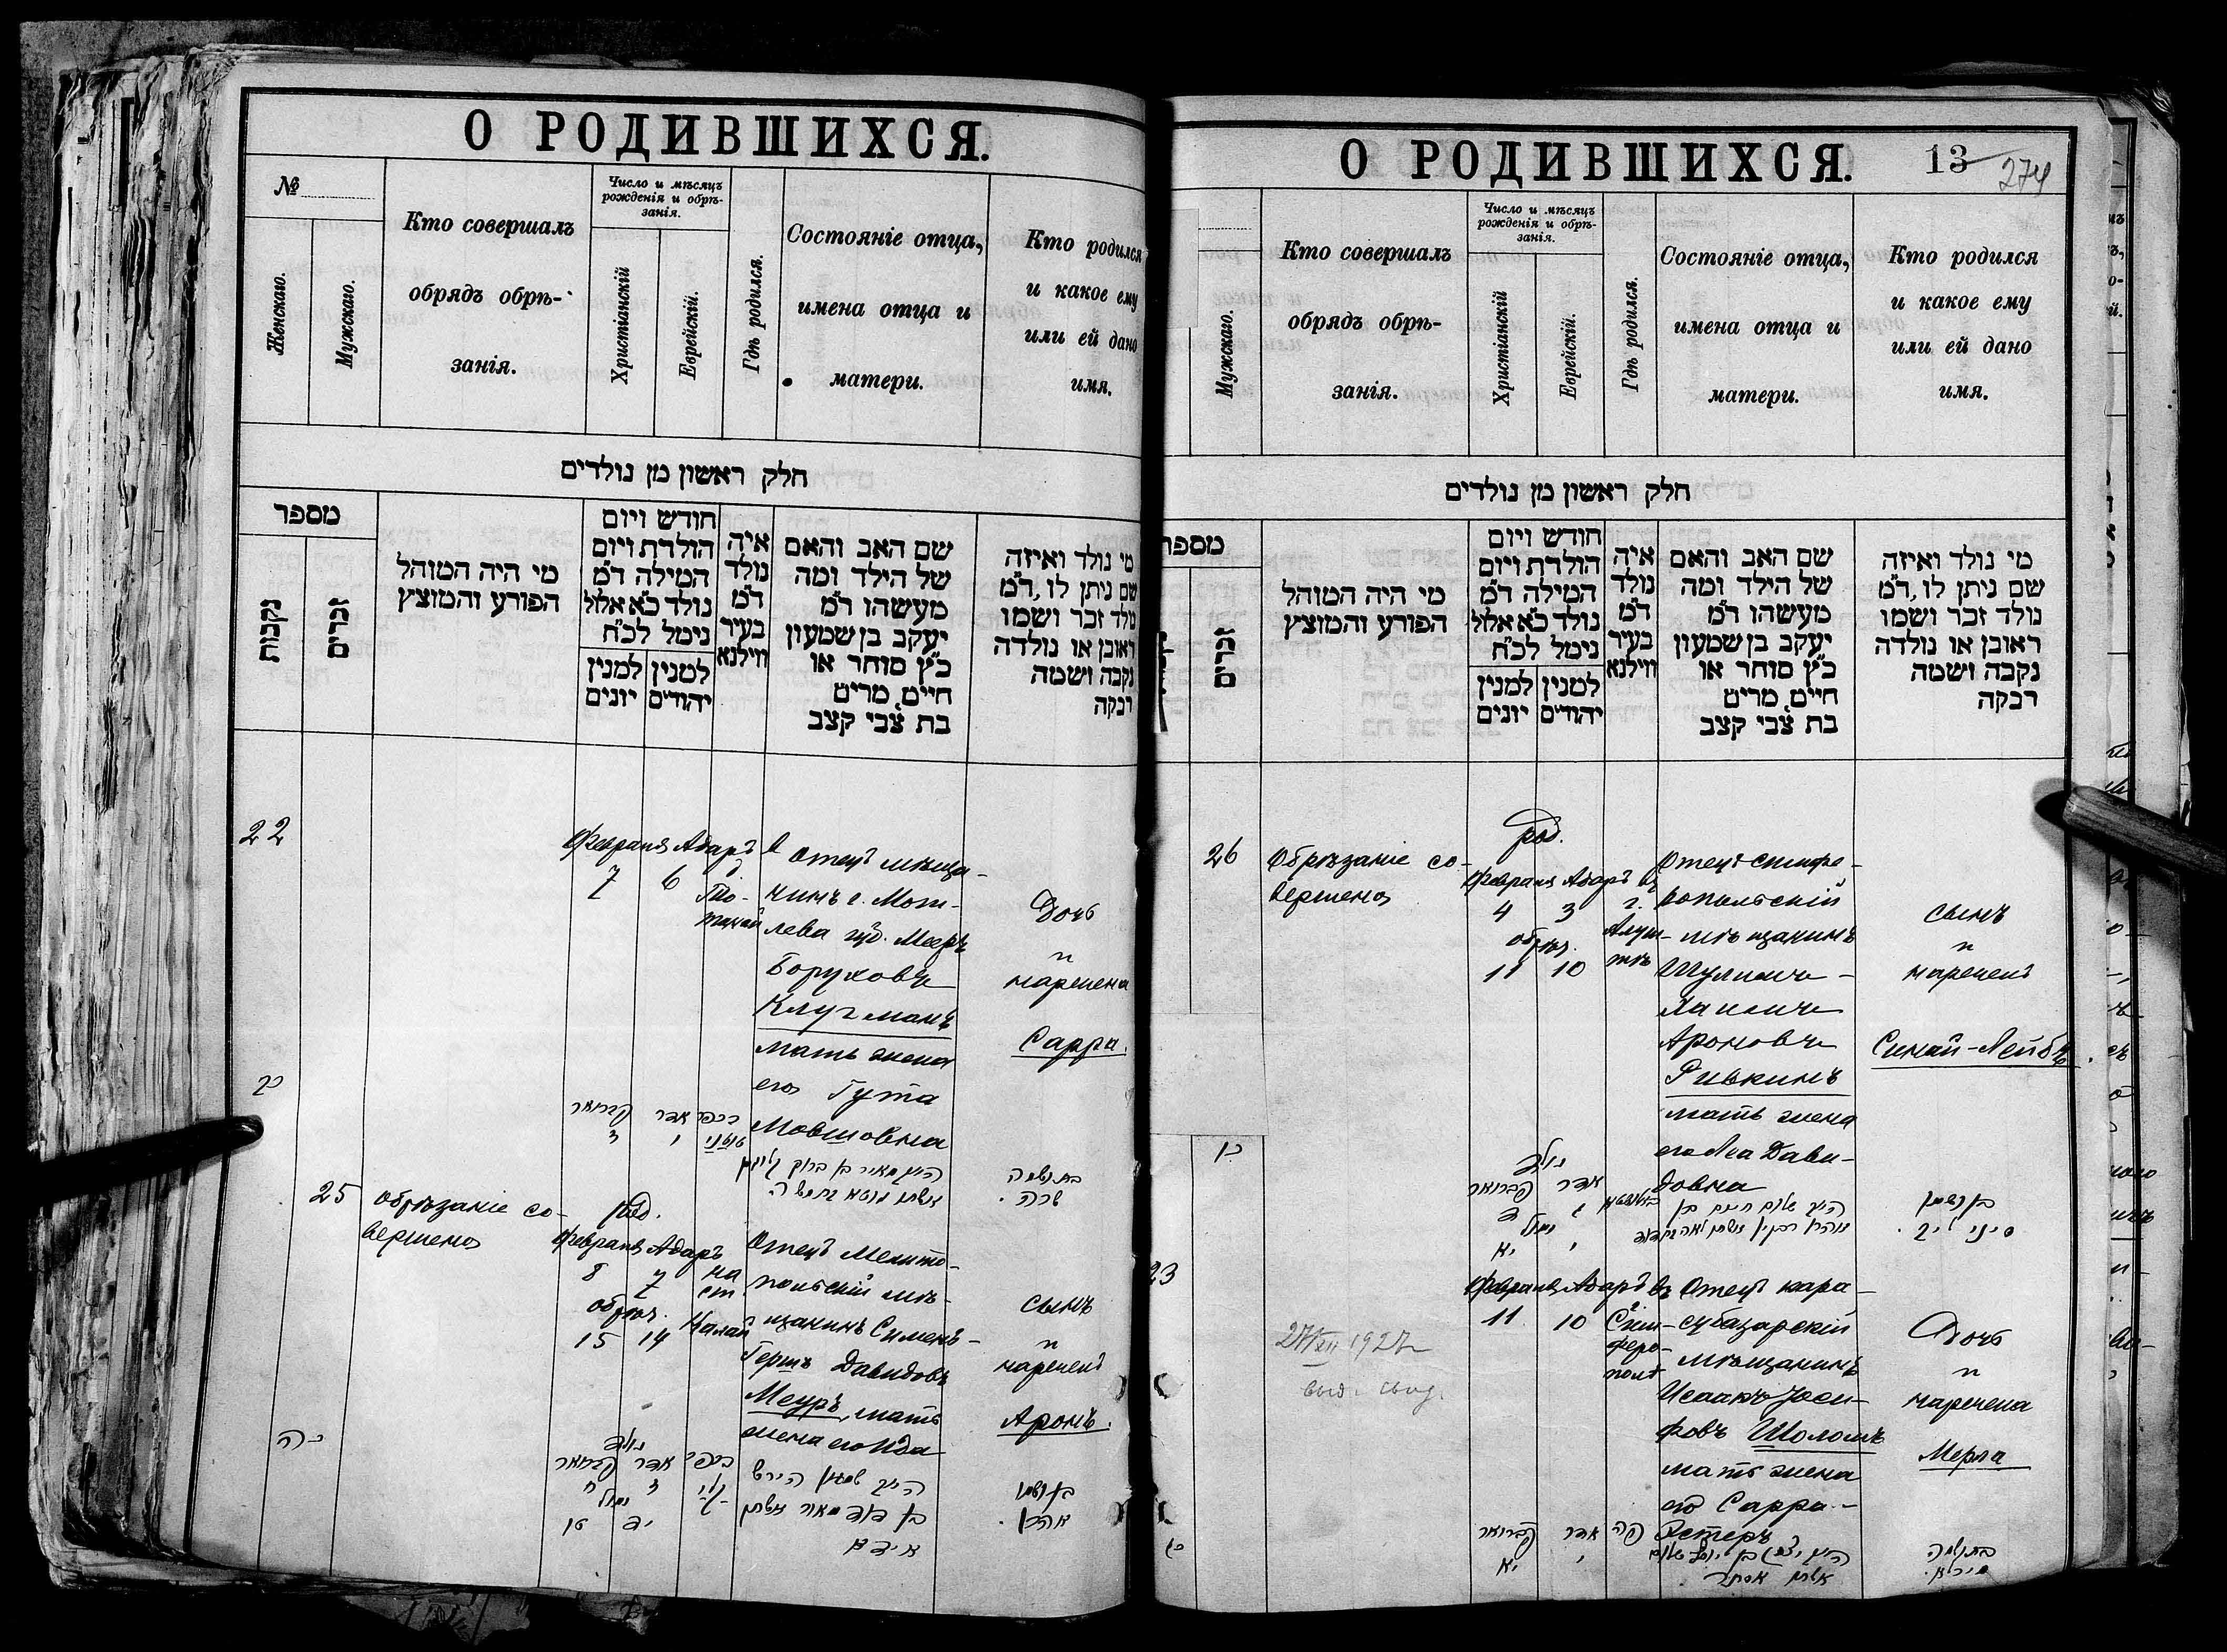 О РОДИВШИХСЯ.
№
Женскаго.
Мужскаго.
Кто совершалъ
обрядъ обрѣ-
занія.
Число и мѣсяцъ
рожденія и обрѣ-
занія.
Христіанскій
Еврейскій.
Гдѣ родился.
Состояніе отца,
имена отца и
матери.
Кто родился
и какое ему
или ей дано
имя.
חלק ראשון מן נולדים
מספר
נקבות
זכרים
מי היה המוהל
הפורע והמוצץ
חודש ויום
הולדת ויום
המילה ד״מ
נולד כ״א אלול
נימל לכ״ח
למנין
יונים
למנין
יהודים
איה
נולד
ד״מ
בעיר
ווילנא
שם האב והאם
של הילד ומה
מעשהו ד״מ
יעקב בן שמעון
כ״ץ סוחר או
חיים, מרים
בת צבי קצב
מי נולד ואיזה
שם ניתן לו, ד״מ
נולד זכר ושמו
ראובן או נולדה
נקבה ושמה
רבקה
22
Февраля Адаръ в
7 6
д
То-
такой
Отецъ мѣща-
нинъ г. Моги-
лева губ. Мееръ
Боруховъ
Клугманъ
мать жена
его Гута
Мовшовна
Дочь
и
наречена
Сарра.
כב
פברואר
אדר
ז
ו
בת ושמה
שרה.
25
Обрѣзаніе со-
вершено
род.
Февраля Адаръ
8 7
обрѣз.
15 14
на
ст.
Отецъ Мелито-
польскій мѣ-
щанинъ Сименъ-
Гершъ Давидовъ
Меуръ, мать
жена его Ида
сынъ
и
нареченъ
Аронъ.
כה
נולד
פברואר
אדר
ח
ז
נימול
טו
יד
בן ושמו
אהרן.
אידא
О РОДИВШИХСЯ.
13
274
Мужскаго.
Кто совершалъ
обрядъ обрѣ-
занія.
Число и мѣсяцъ
рожденія и обрѣ-
занія.
Христіанскій
Еврейскій.
Гдѣ родился.
Состояніе отца,
имена отца и
матери.
Кто родился
и какое ему
или ей дано
имя.
חלק ראשון מן נולדים
מספר
זכרים
מי היה המוהל
הפורע והמוצץ
חודש ויום
הולדת ויום
המילה ד״מ
נולד כ״א אלול
נימל לכ״ח
למנין
יונים
למנין
יהודים
איה
נולד
ד״מ
בעיר
ווילנא
שם האב והאם
של הילד ומה
מעשהו ד״מ
יעקב בן שמעון
כ״ץ סוחר או
חיים, מרים
בת צבי קצב
מי נולד ואיזה
שם ניתן לו, ד״מ
נולד זכר ושמו
ראובן או נולדה
נקבה ושמה
רבקה
26
Обрѣзаніе со-
вершено
род.
Февраля Адаръ въ
4 3
обрѣз.
11 10
г.
Алуш-
тѣ
Отецъ симфе-
ропольскій
мѣщанинъ
Шулимъ-
Хаимъ
Ароновъ
Ривкинъ
мать жена
его Леа Дави-
довна
сынъ
и
нареченъ
Синай-Лейбъ.
כו
נולד
פברואר
אדר
ד
ג
נימול
יא
י
בן ושמו
סיני ליב.
23
Февраля Адаръ въ
11 10
г.
Сим-
феро-
полѣ
27/XII 1927
выд. свид.
Отецъ кара-
субазарскій
мѣщанинъ
Исаакъ Іоси-
фовъ Шоломъ
мать жена
его Сарра-
Эстеръ
Дочь
и
наречена
Мерла
כג
פברואר
אדר
יא
י
בת ושמה
מירלא.